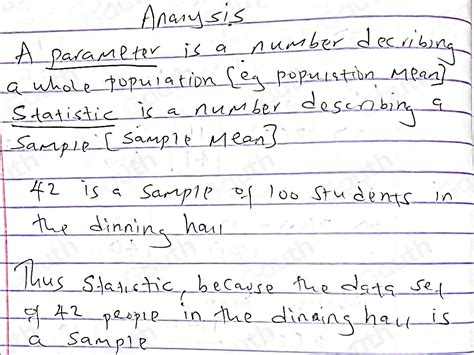 Ananysis
A parameter is a number decribing
a whole popuiation [eg popuiation mean]
Statistic is a number describing a
Sampie [Sampie mean]
42 is a sampie of 100 students in
the dinning hau
Thus Statistic, because the data set
of 42 peopie in the dinning hau is
a sampie